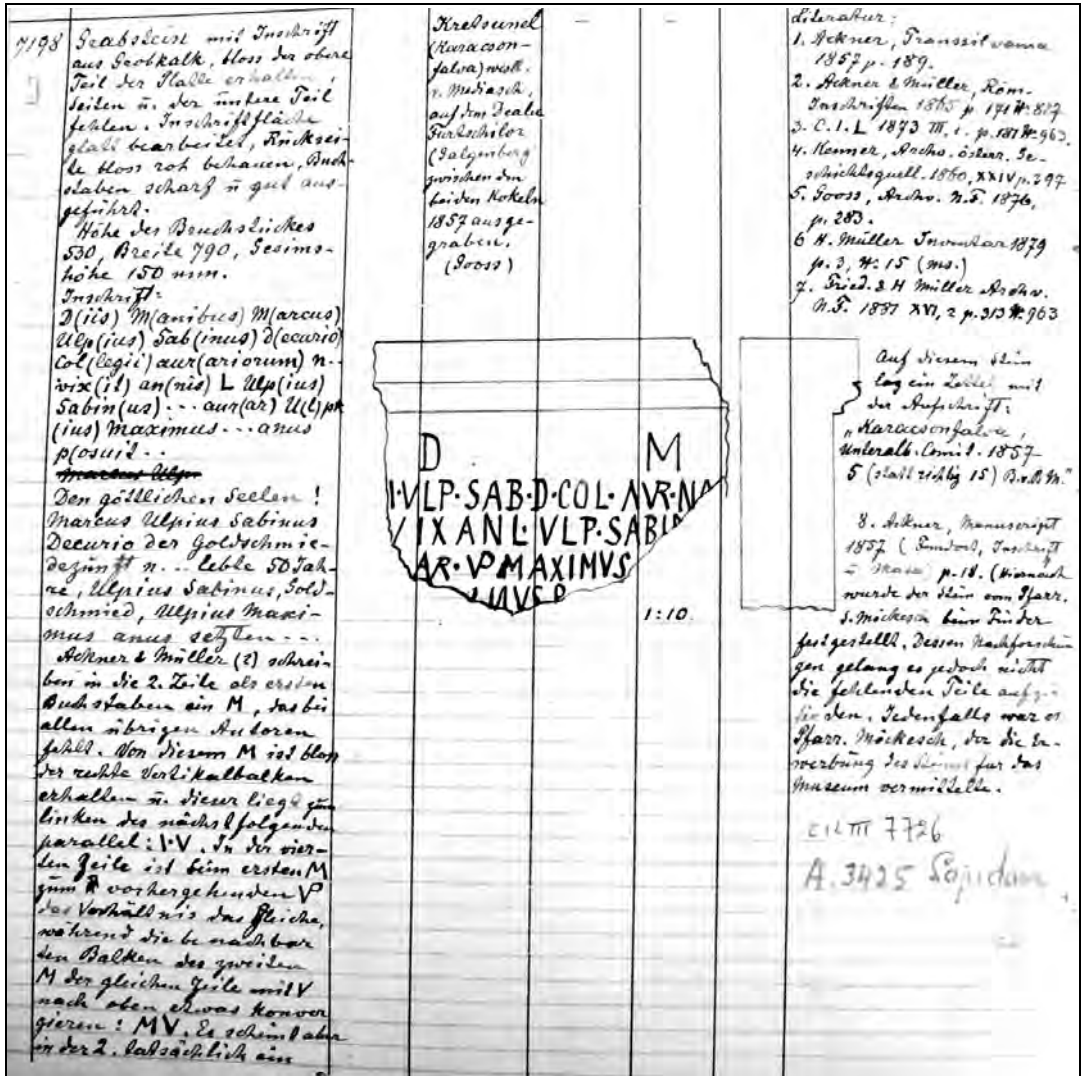 7198
Grabstein mit Inschrift
aus Grobkalk, bloss der obere
Teil der Platte erhalten,
Seiten u. der untere Teil
fehlen. Inschriftfläche
glatt bearbeitet, Rücksei-
te bloss roh behauen, Buch-
staben scharf u gut aus-
geführt.
Höhe des Bruchstückes
530, Breite 790, Gesims-
höhe 150 mm.
Inschrift:
D(iis) M(anibus) M(arcus)
Ulp(ius) Sab(inus) D(ecurio)
Col(legii) aur(ariorum) n..
vix(it) an(nis) L Ulp(ius)
Sabin(us) ... aur(ar) U(l)p
(ius) Maximus ... anus
p(osuit..
Marcus Ulp
Den göttlichen Seelen!
Marcus Ulpius Sabinus
Decurio der Goldschmie-
dezunft n... lebte 50 Jah-
re, Ulpius Sabinus, Gold-
schmied, Ulpius Maxi-
mus anus setzten ...
Ackner & Müller (2) schrei-
ben in die 2. Zeile als ersten
Buchstaben ein M, das bei
allen übrigen Autoren
fehlt. Von diesem M ist bloss
der rechte Vertikalbalken
erhalten u. dieser liegt zum
linken des nächstfolgenden
parallel: I·V. In der vier-
ten Zeile ist beim ersten M
zum vorhergehenden VP
das Verhältnis das Gleiche,
während die benachbar
ten Balken des zweiten
M der gleichen Zeile mit V
nach oben etwas konver
gieren: MV. Es scheint aber
in der 2. tatsächlich ein
Kretsunel
(Karacson-
falva) westl.
v. Mediasch,
auf dem Dealu
Furtschilor
(Galgenberg
zwischen den
beiden Kokeln
1857 ausge-
graben.
(Gooss)
D M
I·VLP·SAB·D·COL·AVR·NA
VIX AN L·VLP·SABIN
AR·VP MAXIMVS
ANVS P
1:10.
Literatur:
1. Ackner, Transsilvania
1857 p. 189.
2. Ackner & Müller, Röm.
Inschriften 1865 p. 171 №: 827
3. C.I.L 1873 III, 1. p. 187 №: 963.
4. Kenner, Archv. österr. Ge-
schichtsquell. 1860, XXIV p. 397
5. Gooss, Archv. N.F. 1876,
p. 283.
6 H. Müller Inventar 1879
p. 3, №: 15 (ms.)
7. Fried. & H Müller Archv.
N.F. 1881 XVI, 2 p. 313 №: 963
Auf diesem Stein
lag ein Zettel mit
der Aufschrift:
„Karacsonfalva,
Unteralb. Comit. 1857
5 (statt richtig 15) B.v.B M."
8. Ackner, Manuscript
1857 (Fundort, Inschrift
u Masse) p. 18. (Hiernach
wurde der Stein vom Pfarr.
S. Möckesch beim Finder
festgestellt. Dessen Nachforschun
gen gelang es jedoch nicht
die fehlenden Teile aufzu-
finden. Jedenfalls war es
Pfarr. Möckesch, der die Er-
werbung des Steins für das
Museum vermittelte.
CIL III 7726
A. 3425 Lapidar